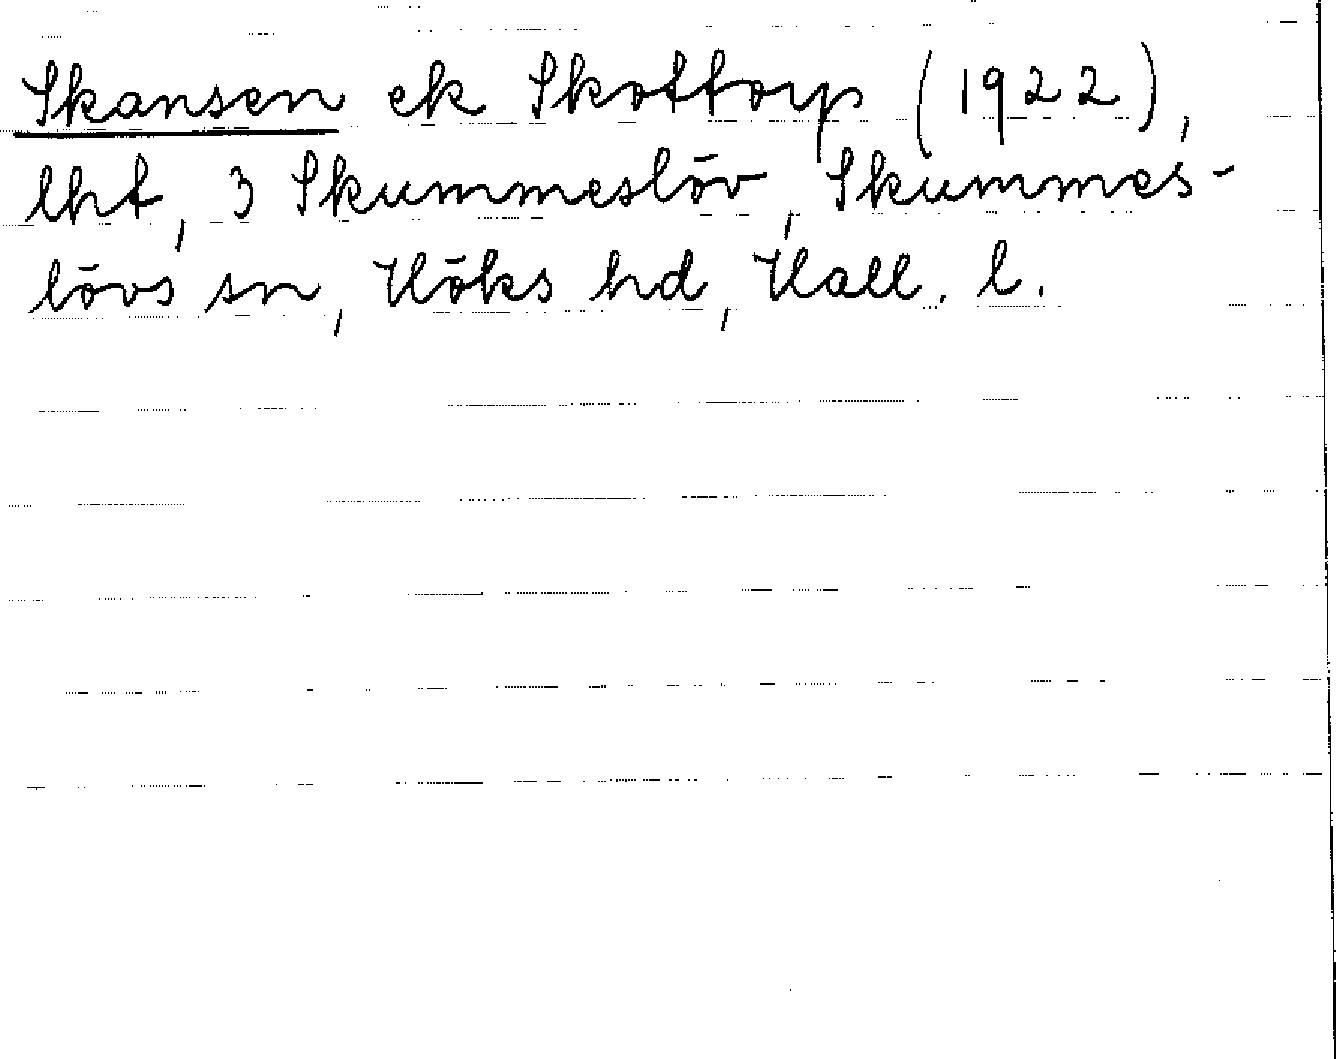 Skansen ek Skottorp (1922),
lht, 3 Skummeslöv, Skummes-
lövs sn, Höks hd, Hall. l.